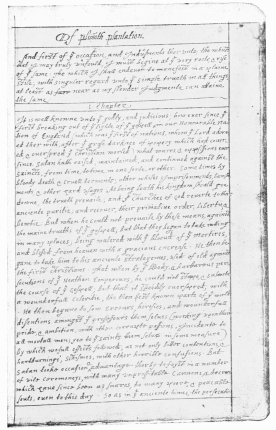 Of plimoth plantation.
And first of occasion, and Indusments ther unto; the which
that I may truly unfould, I must begine at very roote & rise
of same. The which I shall endevor to manefest in a plaine
stile; with singuler regard unto simple trueth in all things,
at least as farr near as my slender Judgmente can attaine
the same.
1. Chapter
It is well knowne unto godly, and judicious, how ever since
first breaking out of lighte of gospell, in our Honourable na-
tion of England which was first of nations, whom Lord adorn-
ed ther with, after grosse darknes of popery which had cover-
ed & overspred christian world, what warrs & opposissions ever
since Satan hath raised, maintained, and continued against the
saincts, from time, to time, in one sorte, or other. Some times by
bloody death & cruell torments, other whiles Imprisonments, banish-
ments, & other hard usages. As being loath his kingdom should goe
downe, the trueth prevaile; and Churches of God reverte to their
anciente puritie; and recover, their primative order, libertie &
bewtie. But when he could not prevaile by these means, against
the maine trueths of gospell, but that they began to take rootting
in many places; being watered with blood of martires,
and blessed from heaven with a gracious encrease. He then be-
gane to take him to his anciente strategemes, used of old against
the first christians. That when by bloody, & barbarous perse-
cutions of Heathen Emperours, he could not stoppe, & subverte
the course of gospell; but that it speedily overspred, with
a wounderfull celeritie, the then best known parts of world.
He then begane to sow errours, heresies, and wounderfull
disentions amongst professours them selves (working upon their
pride, & ambition, with other corrupte passions, Incidente to
all mortall men; yea to saints them selves in some measure)
by which wofull effects followed; as not only bitter contentions, &
hartburnings, schismes, with other horrible confusions. But
Satan tooke occasion & advantage therby to foyst in a number
of vile ceremoneys, with many unprofitable Cannons, & decrees
which have since been as snares, to many poore, & peaceable
souls, even to this day. So as in anciente times, the persecuti-